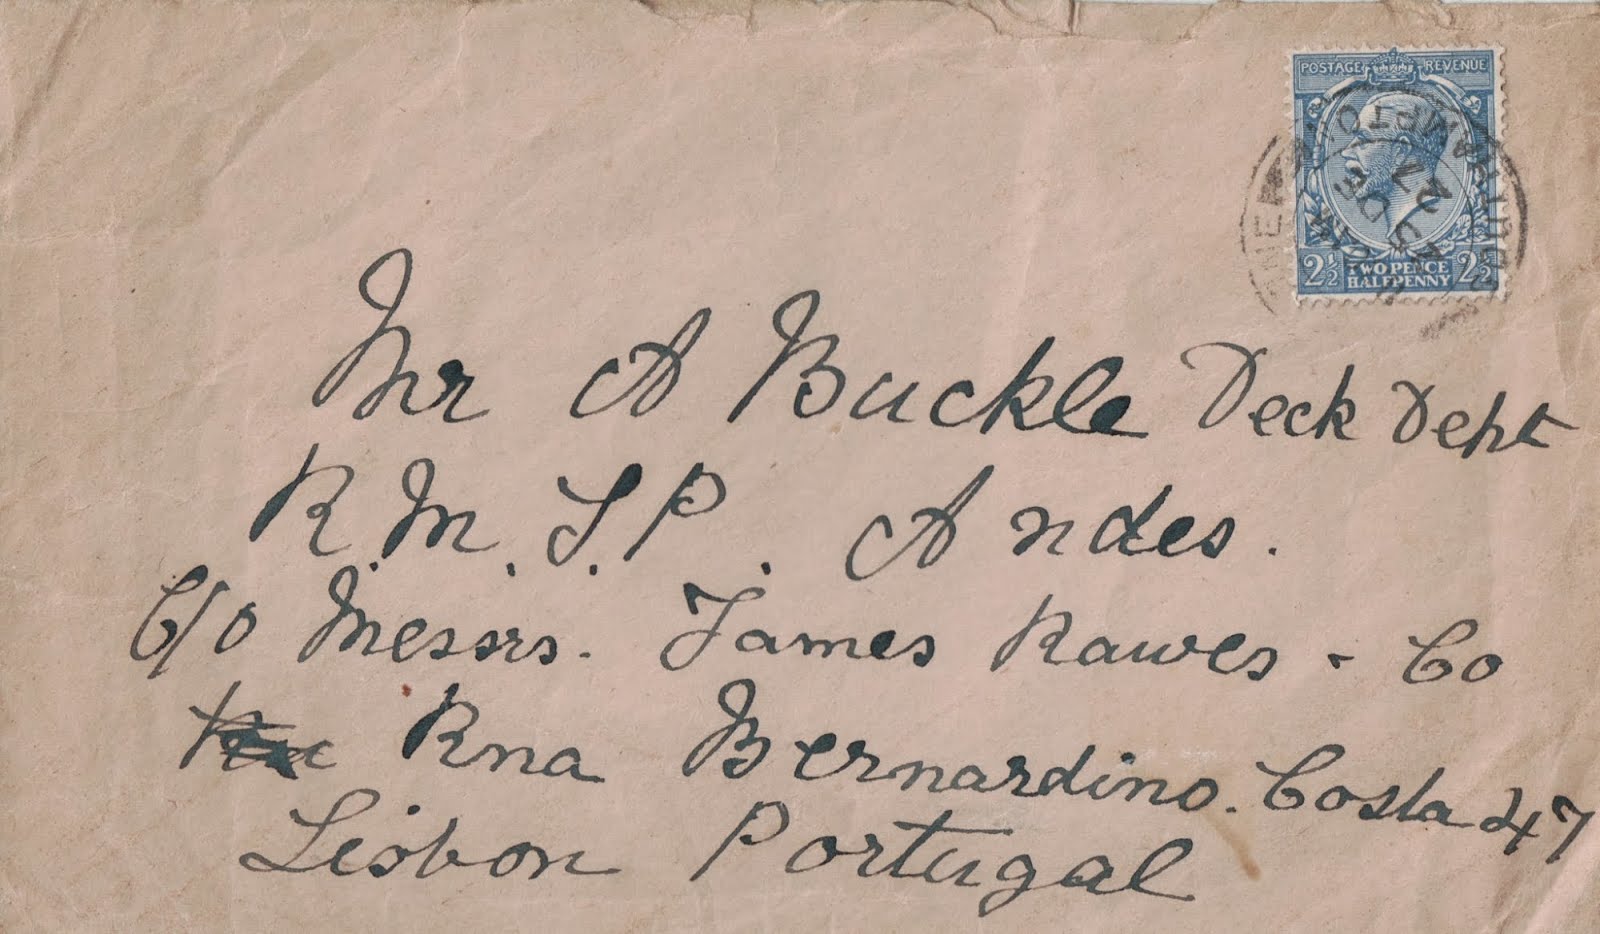 POSTAGE REVENUE
2½ TWO PENCE HALFPENNY 2½
Mr A Buckle Deck Dept
R.M.S.P. Andes.
C/o Messrs. James Rawes - Co
Rna Bernardino. Costa 47
Lisbon Portugal